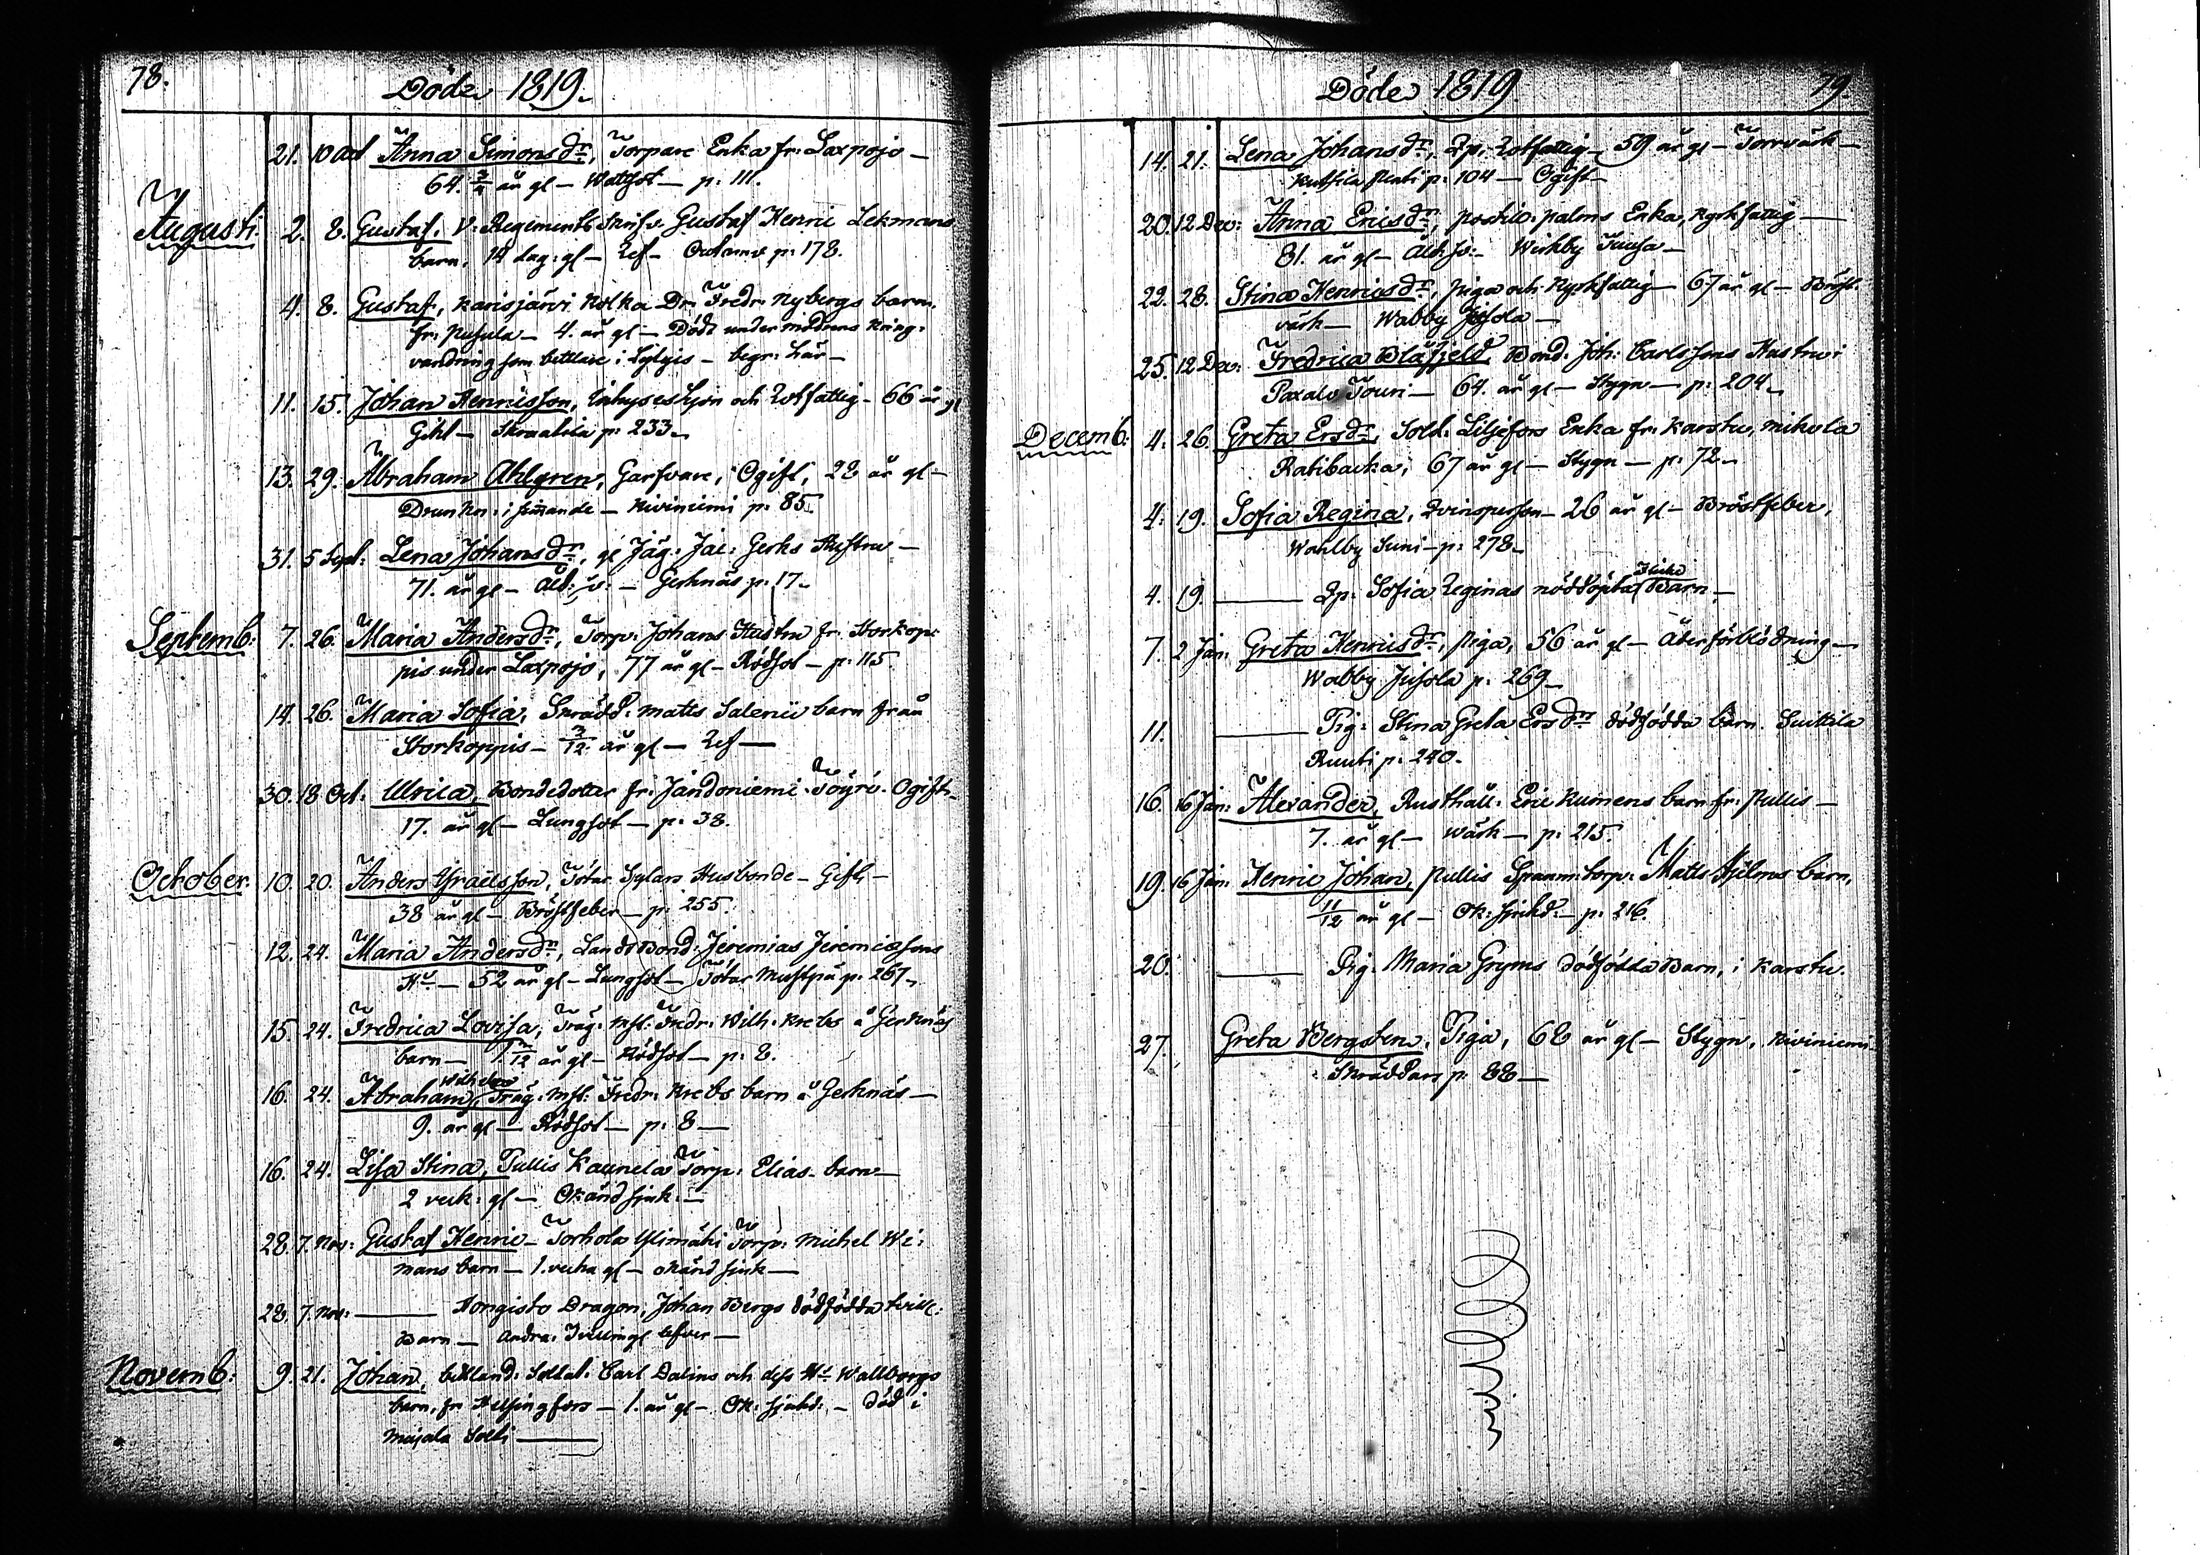 78.
Döde 1819.
21. 10 Oct Anna Simons dr, Torpare Enka fr. Laxpojo —
64 3/4 år gl — Wattsot — p. 111.
Augusti.
2. 8. Gustaf, V. Regements Skrifv. Gustaf Henric Lekmans
barn, 14 dag. gl — p. 178.
4. 8. Gustaf, Karisjärvi Dr. Fredr. Nybergs barn,
fr. Pusula — 4. år gl — Döde under modrens kring-
vandring som bettlare i Lylyis — begr. här —
11. 15. Johan Henricsson, Inhyseshjon och Rotfattig — 66 år gl
Gikt — p. 233.
13. 29. Abraham Ahlgren, Garfvare, Ogift, 28 år gl —
Drunkn. i simmande — Kiviniemi p. 85.
31. 5 Sept. Lena Johans dr, gl Jäg. Jac. Gerks Hustru —
71. år gl — Åld. — Gerknäs p. 17.
Septemb:
7. 26. Maria Anders dr, Torp. Johans Hustru fr. Storkop-
pis under Laxpojo, 77 år gl — Rödsot — p. 115.
14. 26. Maria Sofia, Skrädd. Matts Salenii barn från
Storkoppis — 3/12 år gl —
30. 18 Oct. Ulrica, Bondedotter fr. Jandoniemi Töyri. Ogift.
17. år gl — Lungsot — p. 38.
October.
10. 20. Anders Israelsson, Tötar Sylars Husbonde — Gift —
38 år gl — Bröstfeber — p. 255.
12. 24. Maria Anders dr, LandsBond. Jeremias Jeremiassons
Hu — 52 år gl — Lungsot — Tötar p. 267.
15. 24. Fredrica Lovisa, Träg. mst. Fredr. Wilh. Krebs å Gerknäs
barn — år gl — Rödsot — p. 8.
16. 24. Abraham Wilhelm, Träg. mst. Fredr. Krebs barn å Gerknäs —
9. år gl — Rödsot — p. 8 —
16. 24. Lisa Stina, Pullis Kaunela Torp. Elias barn —
2 veck. gl — Okänd sjuk. —
28. 7. Nov: Gustaf Henric — Torhola Ylimäki Torp. Michel Wi-
mans barn — 1. vecka gl — okänd sjuk —
28. 7. Nov: — Hongisto Dragon, Johan Bergs dödfödda tvill.
Barn — Andra Tvillingl lefver —
Novemb:
9. 21. Johan, Soldat. Carl Dalins och dess Hu Wallborgs
barn, fr Helsingfors — 1. år gl — Ok: sjukd. — död i
Maijala
79.
Döde 1819
14. 21. Lena Johans dr, Qp. Rotfattig — 59 år gl — Torrvärk —
p. 104 — Ogift —
20. 12 Dec: Anna Erics dr, palms Enka, Kyrkfattig —
81. år gl — Åld. — Wichby —
22. 28. Stina Henrics dr, piga och Kyrkfattig — 67 år gl — Bröst-
värk — Wabby Jusola —
25. 12 Dec: Fredrica Blåfjeld Bond. Joh. Carlssons Hustru i
Paxalo Touri — 64. år gl — Stygn — p. 204.
Decemb:
4. 26. Greta Ers dr, Sold. Liljefors Enka fr. Karstu, mikola
Ratibacka, 67 år gl — Stygn — p. 72.
4. 19. Sofia Regina, Qvinsperson — 26 år gl — Bröstfeber,
Wohlby Suni — p. 278.
4. 19. — Qp. Sofia Reginas nöddöpta Flicko Barn —
7. 2 Jan: Greta Henrics dr, piga, 56 år gl — Åderförblödning —
Wabby Jusola p. 269.
11. — Pig. Stina Greta Ers dr dödfödda barn. Suittila
Ruuti p. 240.
16. 16 Jan: Alexander, Rusthåll. Eric Kumens barn fr. Pullis —
7. år gl — Wärk — p. 215.
19. 16 Jan: Henric Johan, Pullis Spanm. torp. Matts Hjelms barn,
11/12 år gl — Ok: sjukd. — p. 216.
20. — Pig. Maria Gryms dödfödda Barn, i Karstu.
27. Greta Bergsten, Piga, 68 år gl — Stygn, Kiviniemi
Skräddars p. 88 —